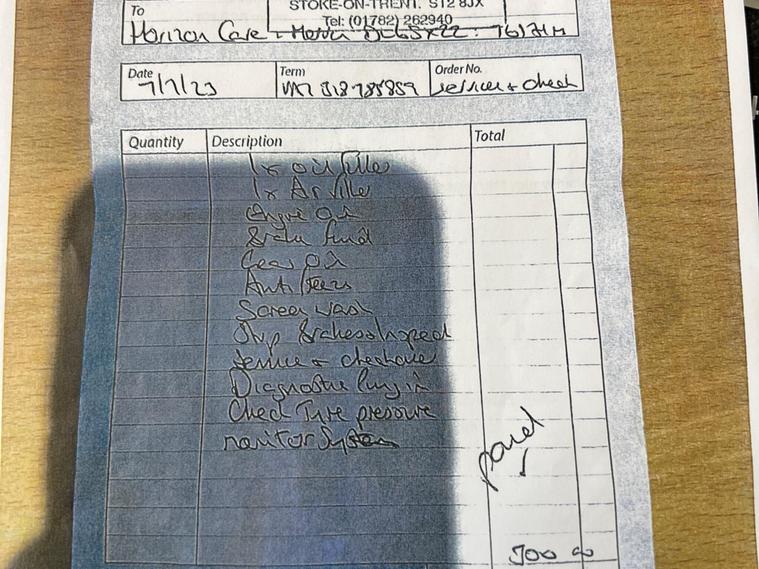 STOKE-ON-TRENT. ST2 8JX
To
Tel: (01782) 262940
Horizon Care
Date Term Order No.
7/7/23 VAT 818 785859 service + check
Quantity Description Total
1x oil filter
1x Air filter
Engine Oil
Brake fluid
Gear Oil
Anti freeze
Screen wash
Strip Brakes + Inspect
Service + checkover
Diagnostic Plug in
Check Tyre pressure
monitor System
paid